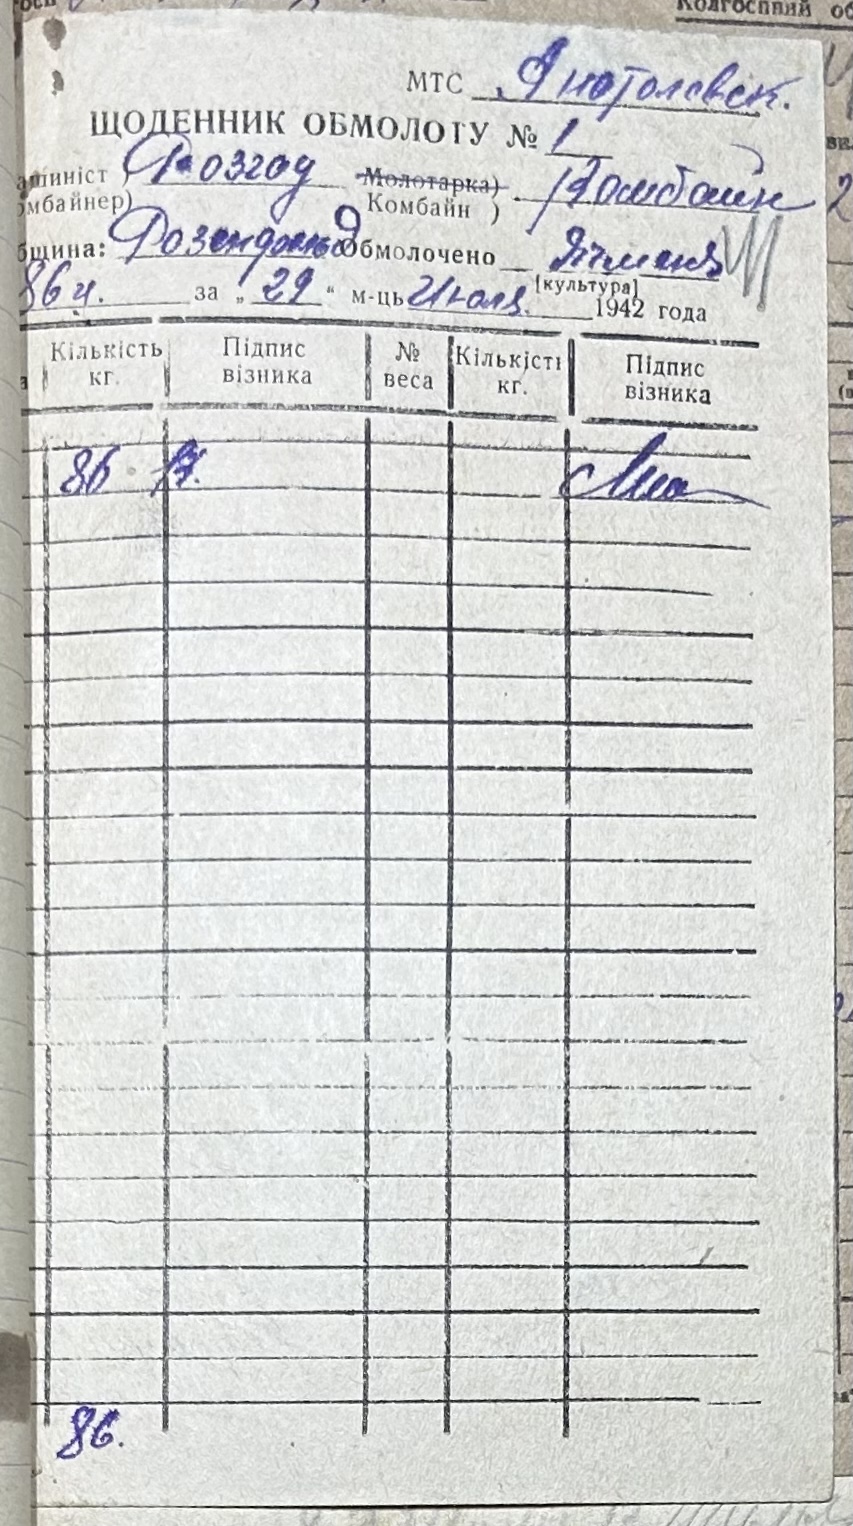 Колгоспний об
МТС Анатолевск.
ЩОДЕННИК ОБМОЛОТУ № 1
ашиніст ) Розгод Молотарка)
омбайнер) Комбайн ) Комбайн
бщина: Розендольд Обмолочено Ячменя
(культура)
86 ц. за „ 29 “ м-ць Июля 1942 года
Кількість кг. Підпис візника № веса Кількість кг. Підпис візника
86
86.